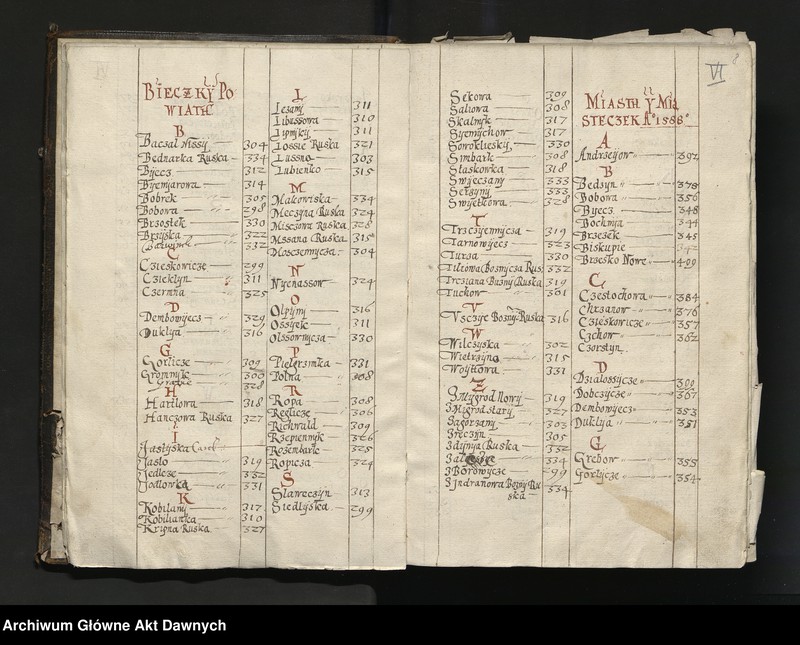 BIECZKY PO
WIATH
B
Baczal Nissy 304
Bednarka Ruska 334
Byecz 312
Byemjarowa 314
Bobrek 305
Bobowa 298
Brzostek 330
Brzyska 322
332
C
Czieskowicze 299
Czieklyn 311
Czermna 325
D
Dembowyecz 329
Duklya 316
G
Gorlicze 309
Gromnyk 300
328
H
Harklowa 318
Hanczowa Ruska 327
I
Jaslyska
Jaslo 319
Jedlcze 332
Jodlowka 331
K
Kobilany 317
Kobilanka 310
Kripna Ruska 327
L
Lezany 311
Libussowa 310
Lipnyky 311
Lossie Ruska 321
Lussna 303
Lubienko 315
M
Malowiska 334
Meczyna Ruska 324
Misczowa Ruska 328
Mssana Ruska 315
Mosczenycza 304
N
Nyenassow 324
O
Olpyny 316
Ossyek 311
Olssownycza 330
P
Pielgrzimka 331
Polna 308
R
Ropa 308
Reglicze 306
Richwald 309
Rzepiennyk 326
Rozembark 325
Ropicza 324
S
Slaweczyn 313
Siedlyska 299
Sekowa 309
Saliowa 308
Skalnyk 317
Syemychow 317
Sowoklieski 330
Simbark 308
Slaskowka 318
Swyeczany 333
Serzyny 333
Swyetkowa 328
T
Trzczyennycza 319
Tarnowyecz 323
Turza 330
Tiliowa Boznycza Rus: 332
Trzciana Bużny Ruska 319
Tuchow 301
V
Vsczye Bożny Ruska 316
W
Wilczyska 302
Wietrzyno 315
Woytowa 331
Z
Zmygrod Nowy 319
Zmigrod stary 327
Zagorzany 303
Zręczyn 305
Zdynya Ruska 332
334
Zborowycze 299
Zyndranowa Bożny Ru
ska 334
VI
MIASTH Y MIA
STECZEK A° 1588°
A
Andrzeyow 392
B
Bedzyn 378
Bobowa 356
Byecz 348
Bochnya 344
Brzezek 345
Biskupie 342
Brzesko Nowe 409
C
Czestochowa 384
Chrzanow 376
Czieskowicze 357
Czchow 362
Czorstyn
D
Dzialossycze 399
Dobczycze 367
Dembowyecz 353
Duklya 351
G
Grebow 355
Gorlycze 354
Archiwum Główne Akt Dawnych